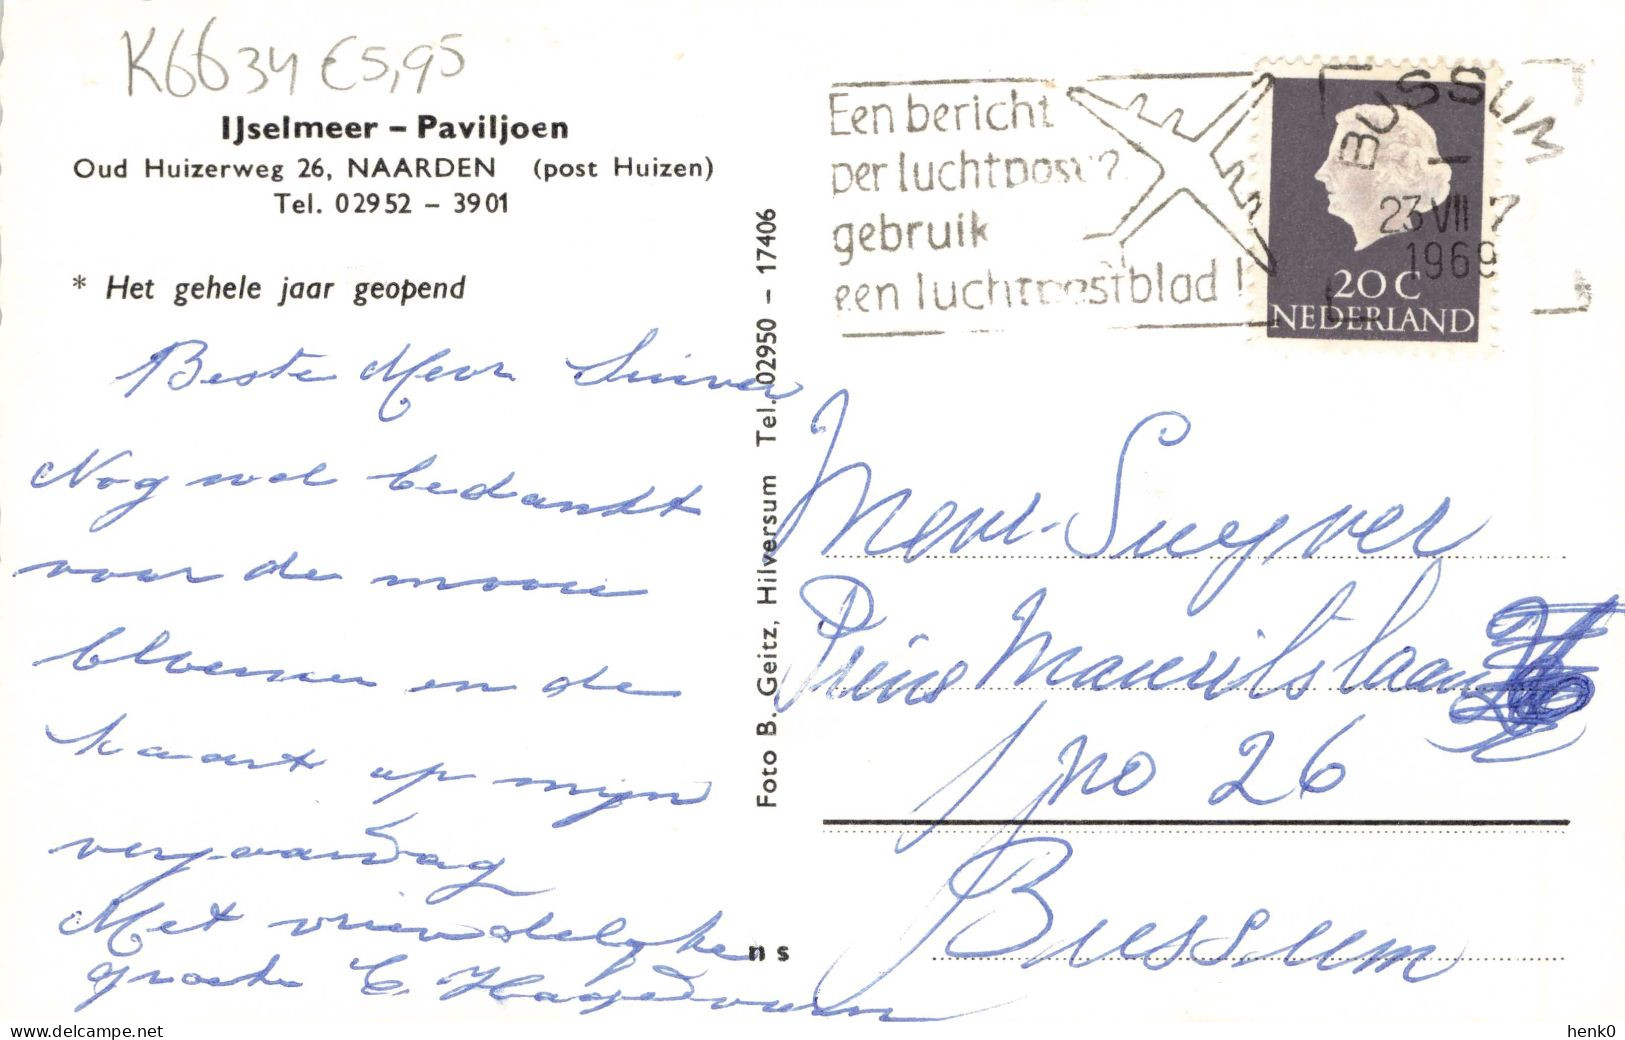 K6634 €5,95
IJselmeer – Paviljoen
Oud Huizerweg 26, NAARDEN (post Huizen)
Tel. 02952 – 3901
* Het gehele jaar geopend
Beste Mevr
Nog wel bedankt
voor de mooie
bloemen en de
kaart op mijn
verjaardag
Met vriendelijke
groeten
Foto B. Geitz, Hilversum Tel. 02950 – 17406
ns
Een bericht
per luchtpost?
gebruik
een luchtpostblad!
BUSSUM
23 VII 7
1969
20 C
NEDERLAND
Mevr. Suyver
Prins Mauritslaan
no 26
Bussum
henk0